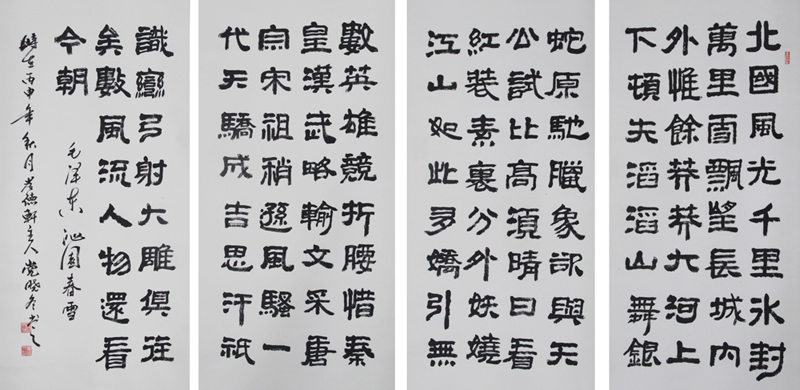 北國風光千里冰封
萬里雪飄望長城內
外惟餘莽莽大河上
下頓失滔滔山舞銀
蛇原馳臘象欲與天
公試比高須晴日看
紅裝素裹分外妖嬈
江山如此多嬌引無
數英雄競折腰惜秦
皇漢武略輸文采唐
宗宋祖稍遜風騷一
代天驕成吉思汗祇
識彎弓射大雕俱往
矣數風流人物還看
今朝
毛澤东 沁園春雪
時在丙申年秋月 德軒主人